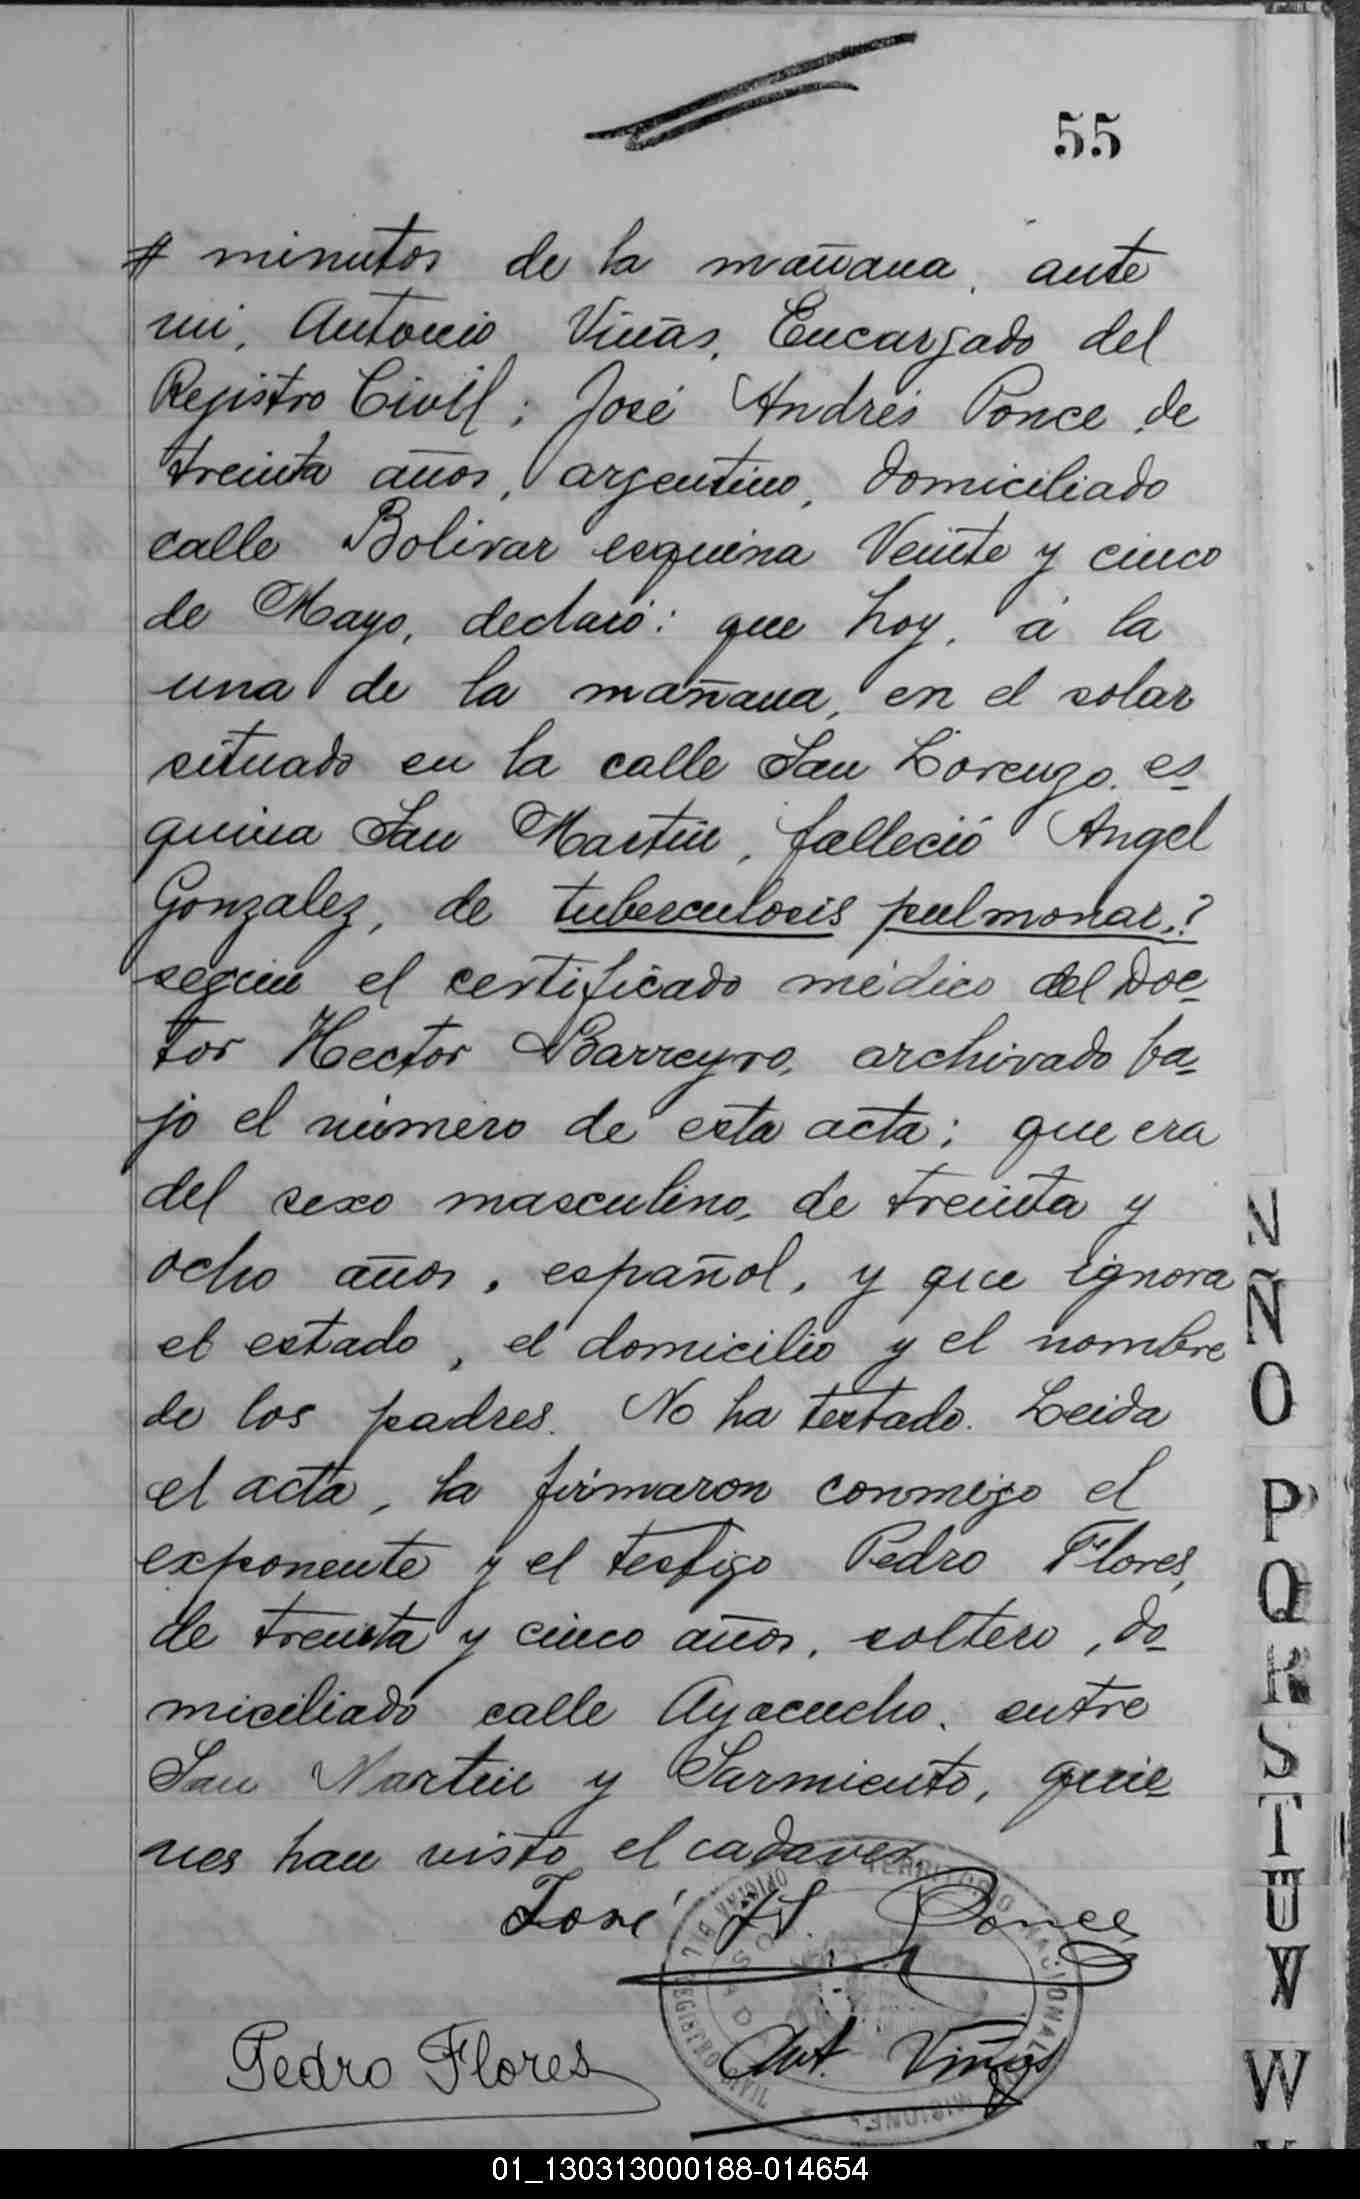 55
# minutos de la mañana, ante
mi, Antonio Viñas, Encargado del
Registro Civil; José Andrés Ponce de
treinta años, argentino, domiciliado
calle Bolivar esquina Veinte y cinco
de Mayo, declaró: que hoy, á la
una de la mañana, en el solar
situado en la calle San Lorenzo, es-
quina San Martín, falleció Angel
Gonzalez, de tuberculosis pulmonar,?
según el certificado médico del Doc-
tor Hector Barreyro, archivado ba-
jo el número de esta acta; que era
del sexo masculino, de treinta y
ocho años, español, y que ignora
el estado, el domicilio y el nombre
de los padres. No ha testado. Leida
el acta, la firmaron conmigo el
exponente y el testigo Pedro Flores,
de treinta y cinco años, soltero, do-
miciliado calle Ayacucho, entre
San Martín y Sarmiento, quie-
nes han visto el cadaver.
José A. Ponce
Pedro Flores
Ant. Viñas
TERRITORIO NACIONAL
MISIONES
POSADAS
N
Ñ
O
P
Q
R
S
T
U
V
W
01_130313000188-014654